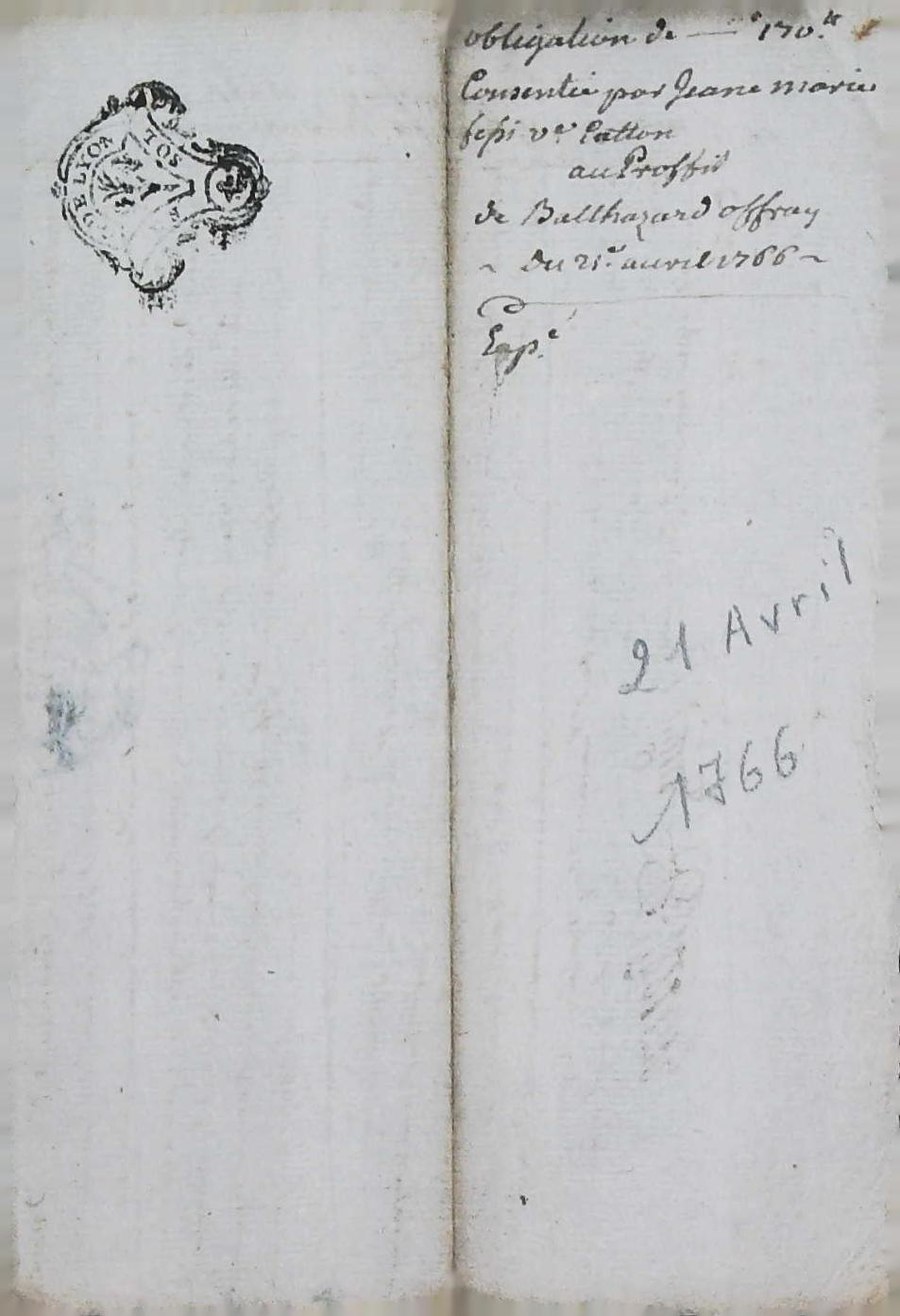 DE LYON
obligation de — 170.tt
Consentie par Jeane marie
ve Catton
au Proffit
de Balthazard offray
~ du 21e. avril 1766 ~
Exp.e
21 Avril
1766